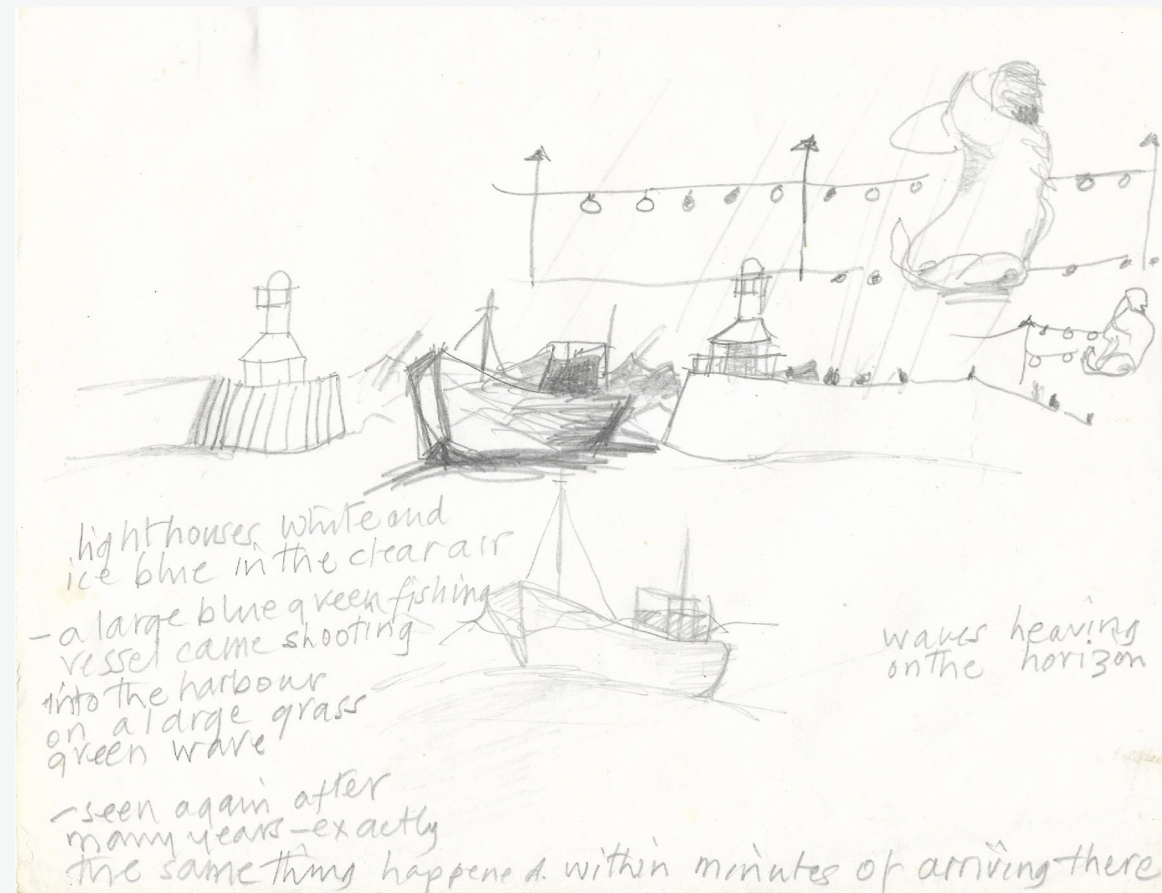 lighthouses white and
ice blue in the clear air
- a large blue green fishing
vessel came shooting
into the harbour
on a large grass
green wave
- seen again after
many years - exactly
the same thing happened. within minutes of arriving there
waves heaving
on the horizon